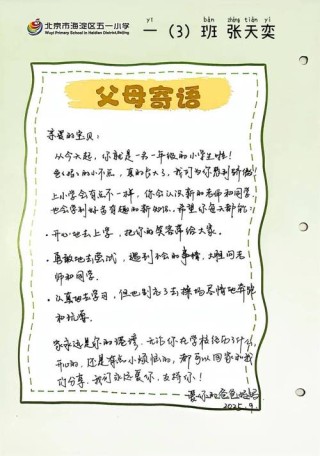 北京市海淀区五一小学
Wuyi Primary School in Haidian District,Beijing
yī bān zhāng tiān yì
一（3）班 张天奕
父母寄语
亲爱的宝贝：
从今天起，你就是一名一年级的小学生啦！
爸妈的小不点，真的长大了，我们为你感到骄傲！
上小学会有点不一样，你会认识新的老师和同学，
也会学到好多有趣的新知识，希望你每天都能：
·开心地去上学，把你的笑容带给大家。
·勇敢地去尝试，遇到不会的事情，大胆问老
师和同学。
·认真地去学习，但也别忘了去操场尽情地奔跑
和玩耍。
家永远是你的港湾，无论你在学校经历了什么，
开心的，还是有点小烦恼的，都可以回家和我
们分享，我们永远爱你，支持你！
爱你的爸爸妈妈
2025.9.